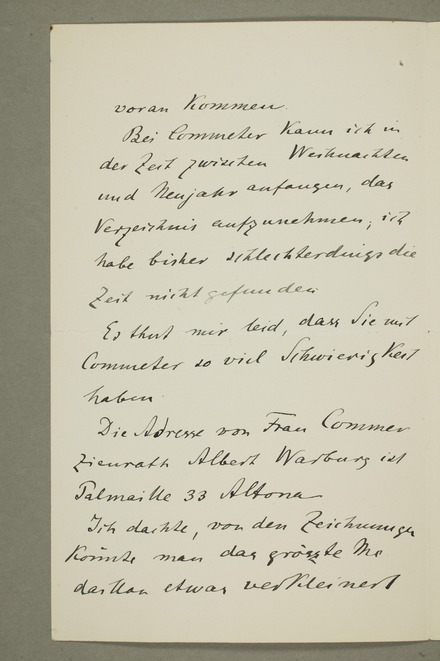 voran kommen.
Bei Commeter kann ich in
der Zeit zwischen Weihnachten
und Neujahr anfangen, das
Verzeichnis aufzunehmen; ich
habe bisher schlechterdings die
Zeit nicht gefunden
Es thut mir leid, dass Sie mit
Commeter so viel Schwierigkeit
haben.
Die Adresse von Frau Commer
zienrath Albert Warburg ist
Palmaille 33 Altona
Ich dachte, von den Zeichnungen
könnte man das grösste Me
daillon etwas verkleinert